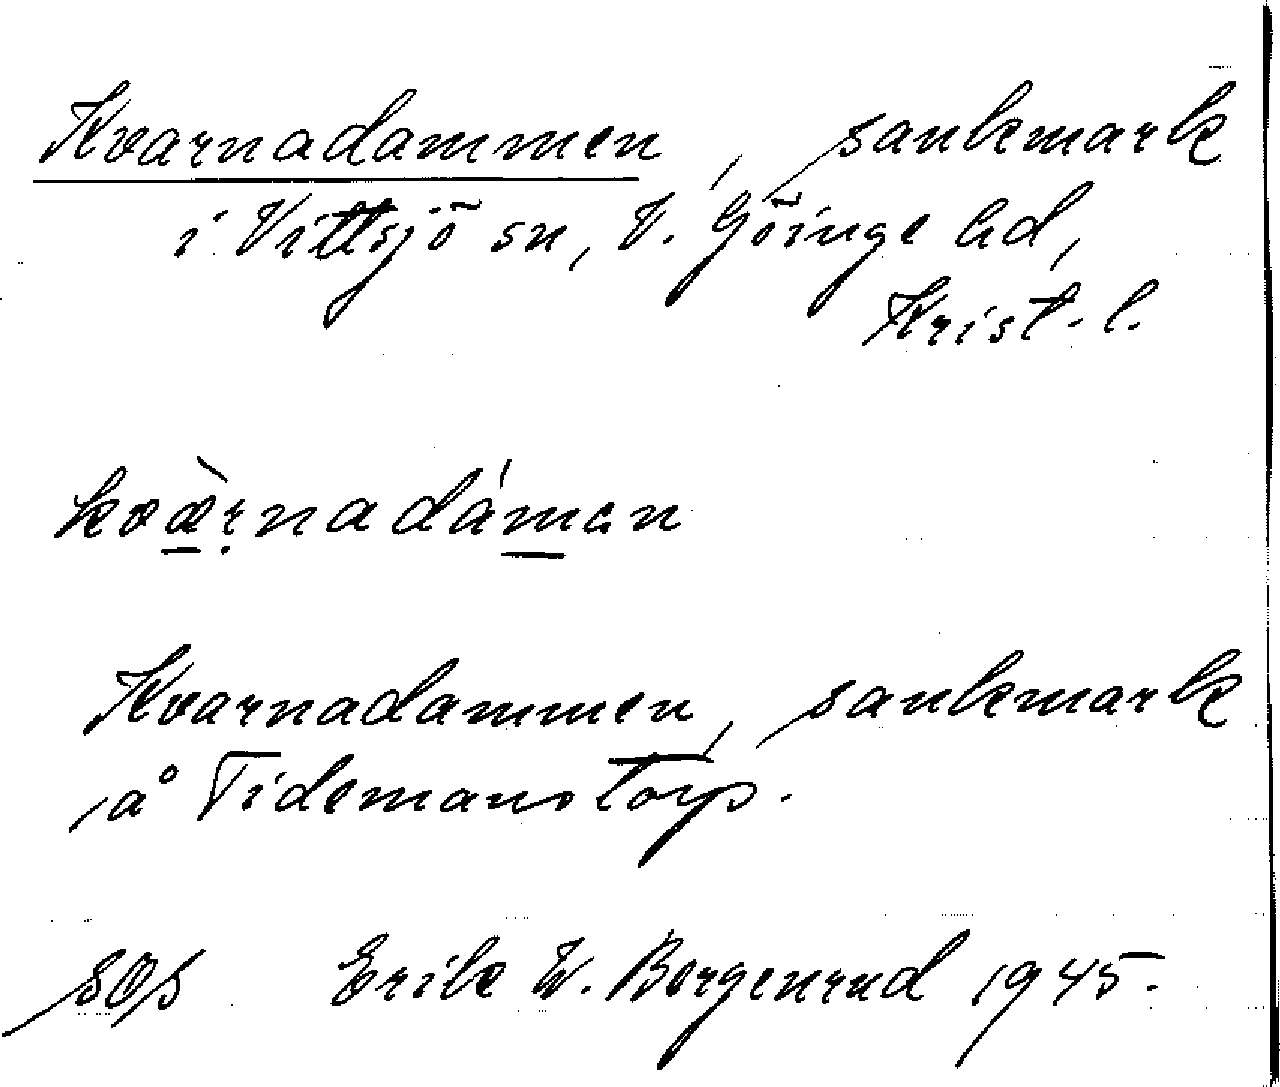 Kvarnadammen, sankmark
i Vittsjö sn, V. Göinge hd,
Krist. l.
kvæ̀rnadámən
Kvarnadammen, sankmark
å Tidemanstorp.
SOS Erik W. Borgenrud 1945.